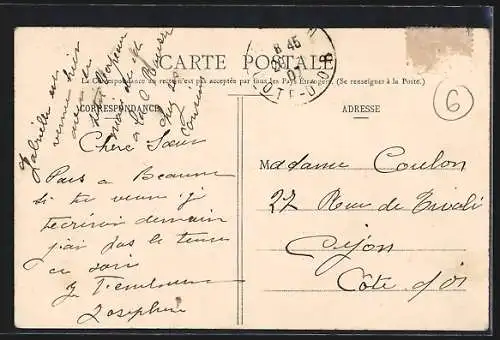 CARTE POSTALE
La Correspondance au recto n'est pas acceptée par tous les Pays Étrangers. (Se renseigner à la Poste.)
CORRESPONDANCE
ADRESSE
8 45
CÔTE-D'OR
6
Gabrielle est
venue hier
avec
Chère Sœur
Pars à Beaune
si tu veux je
t'écrirai demain
j'ai pas le temps
ce soir
Je t'embrasse
Joséphine
Madame Coulon
27 Rue de Tivoli
Dijon
Côte d'Or